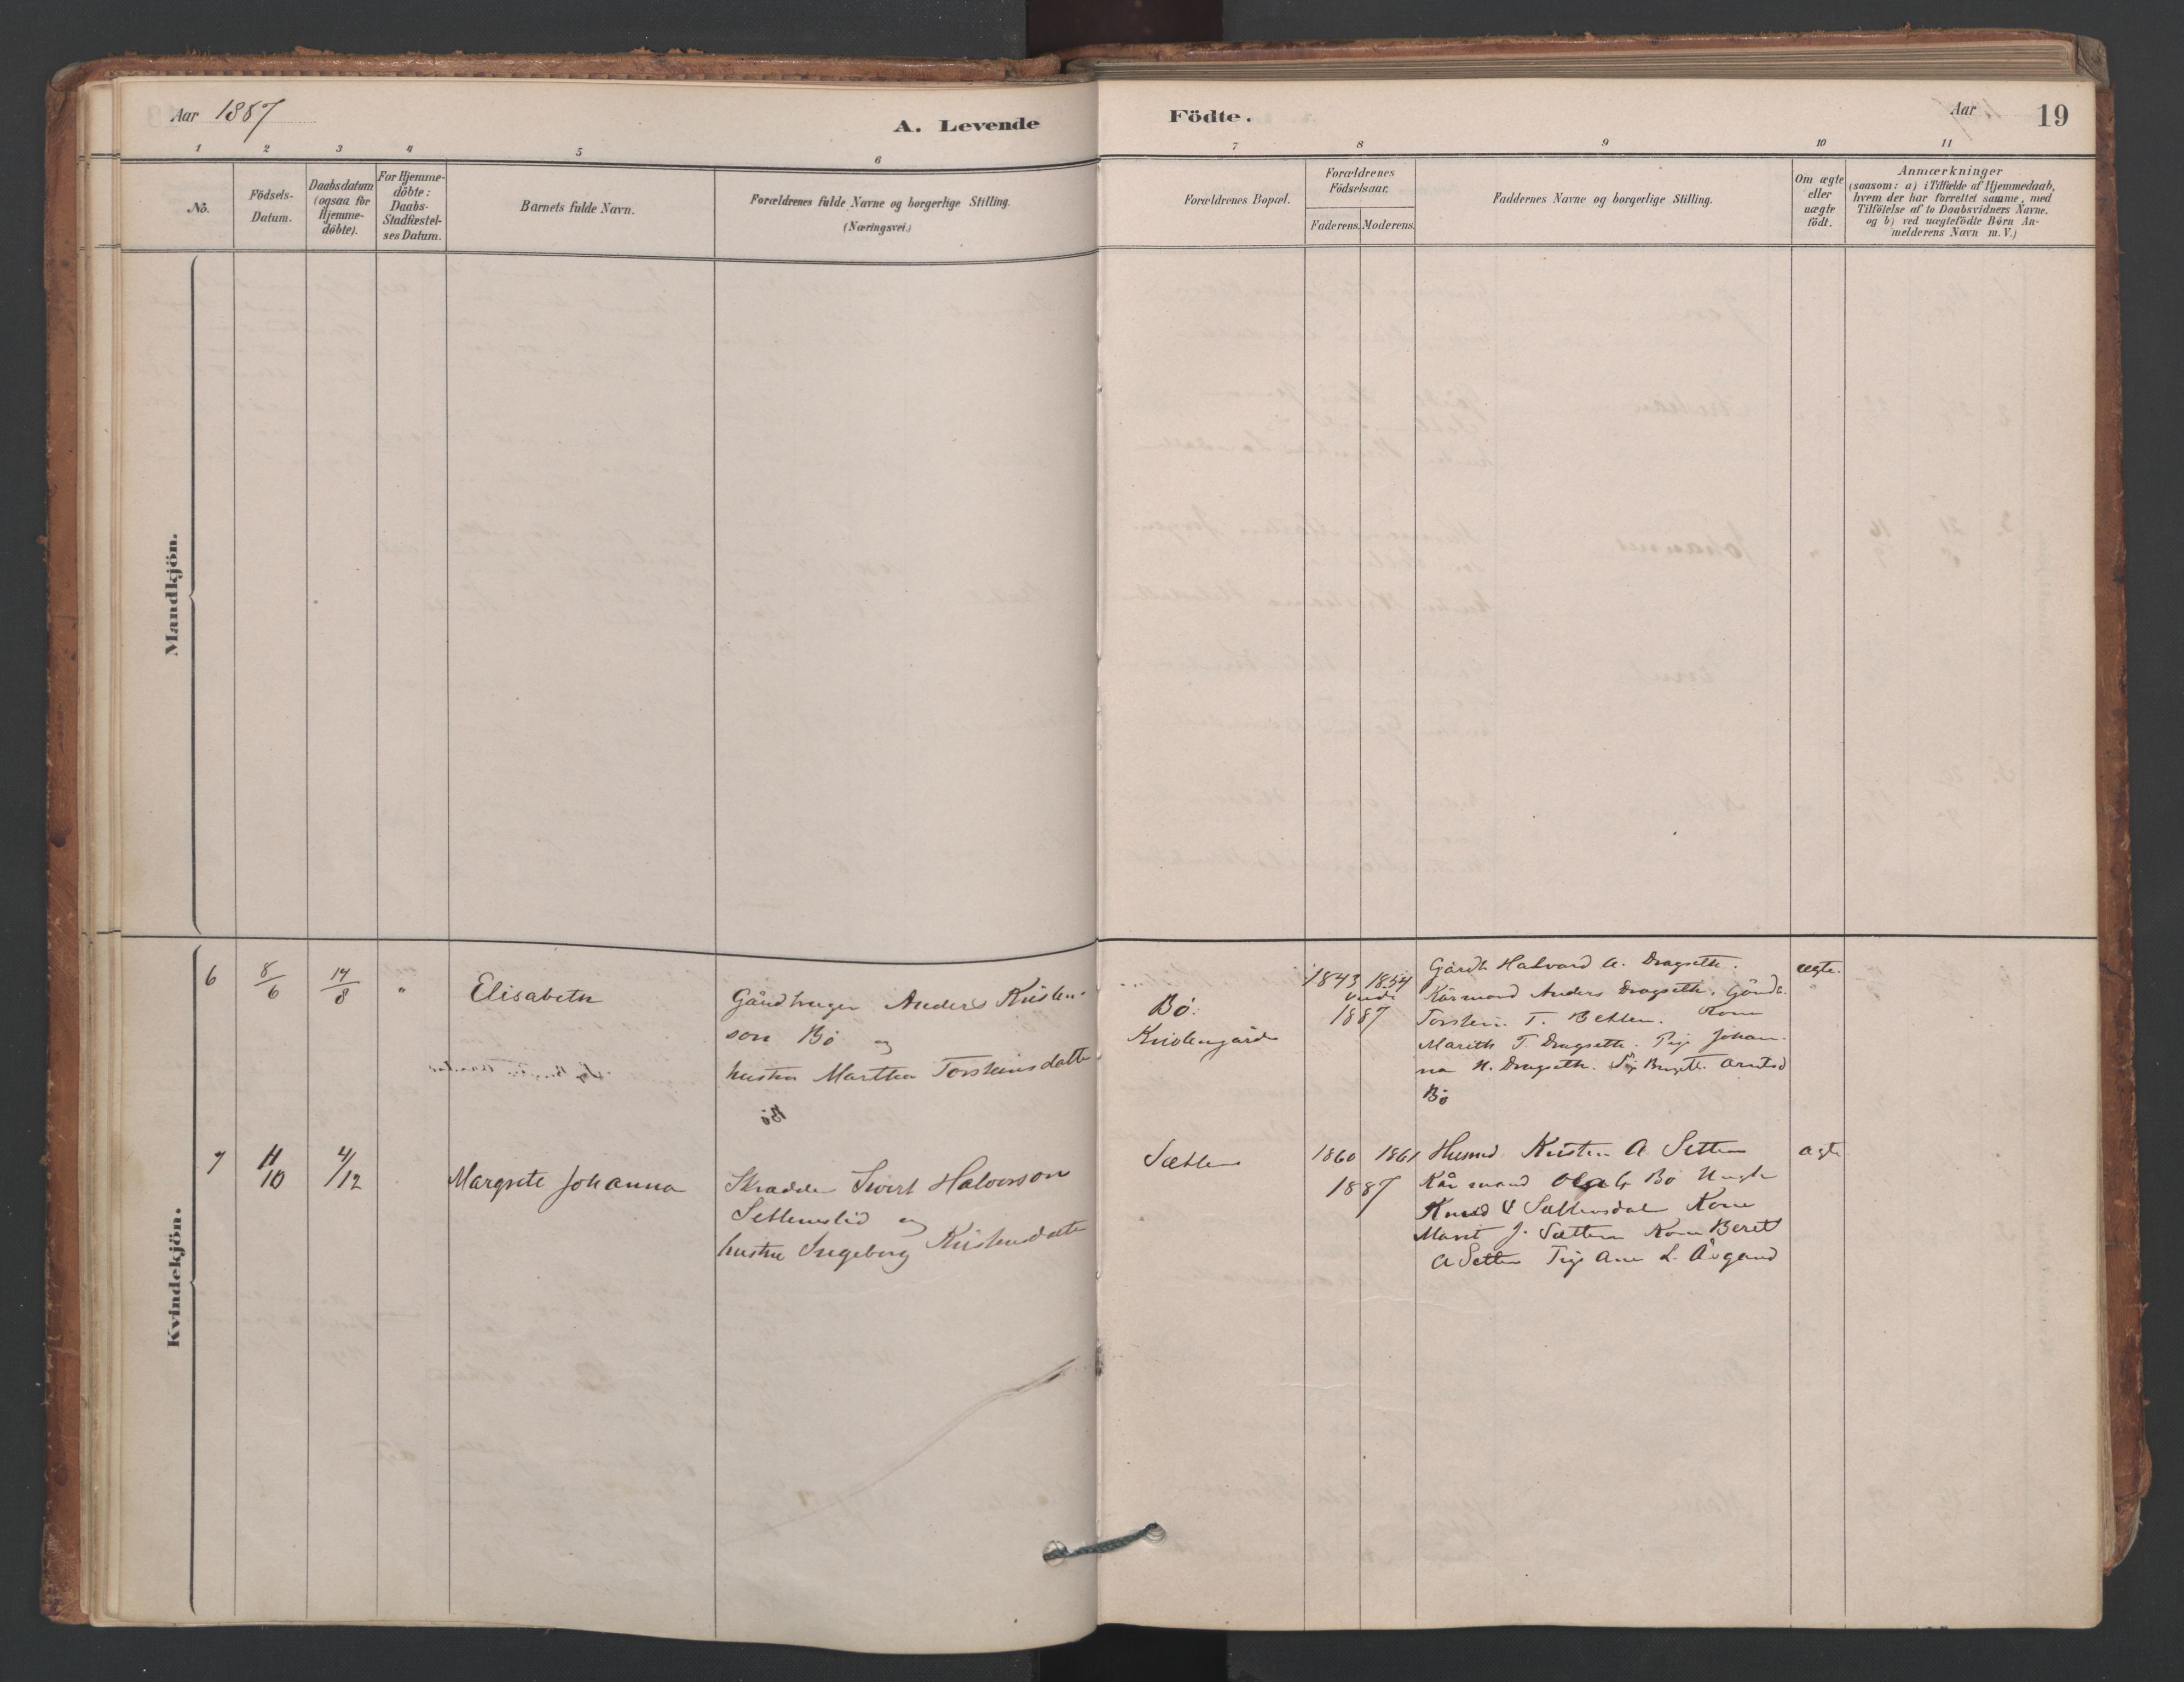 Aar 1887
A. Levende
Födte.
Aar
19
1 2 3 4 5 6 7 8 9 10 11
No.
Födsels-
Datum.
Daabsdatum
(ogsaa for
Hjemme-
döbte).
For Hjemme-
döbte:
Daabs-
Stadfæstel-
ses Datum.
Barnets fulde Navn.
Forældrenes fulde Navne og borgerlige Stilling.
(Næringsvei.)
Forældrenes Bopæl.
Forældrenes
Födselsaar.
Faderens. Moderens.
Faddernes Navne og borgerlige Stilling.
Om ægte
eller
uægte
födt.
Anmærkninger
(saasom: a) i Tilfælde af Hjemmedaab,
hvem der har forrettet samme, med
Tilföielse af to Daabsvidners Navne.
og b) ved uægtefödte Börn An-
melderens Navn m.V.)
Mandkjön.
Kvindekjön.
6 8/6 14/8 " Elisabeth
Gårdbruger Anders Kristen-
son Bö og
hustru Martha Torsteinsdatter
Bö
Bö
1843 1854
1887
Gårdb. Halvard A. Dragseth.
Kårmand Anders Dragseth. Gårdb.
Torstein T. Betten. Kone
Marith T. Dragseth. Pige Johan-
na H. Dragseth. Pige Arntsd
Bö
ægte.
7 11/10 4/12 Margrete Johanna
Skrædder Sivert Halvorson
Settemslid og
hustru Ingeborg Kristensdatter
Sættem
1860 1861
1887
Husmd. Kristen A. Settem
Kårmand Ola Bö Ungk
Knud Sættemsdal Kone
Marit J. Sættem Kone Beret
A Settem Pige Ane L. Åsgård
ægte